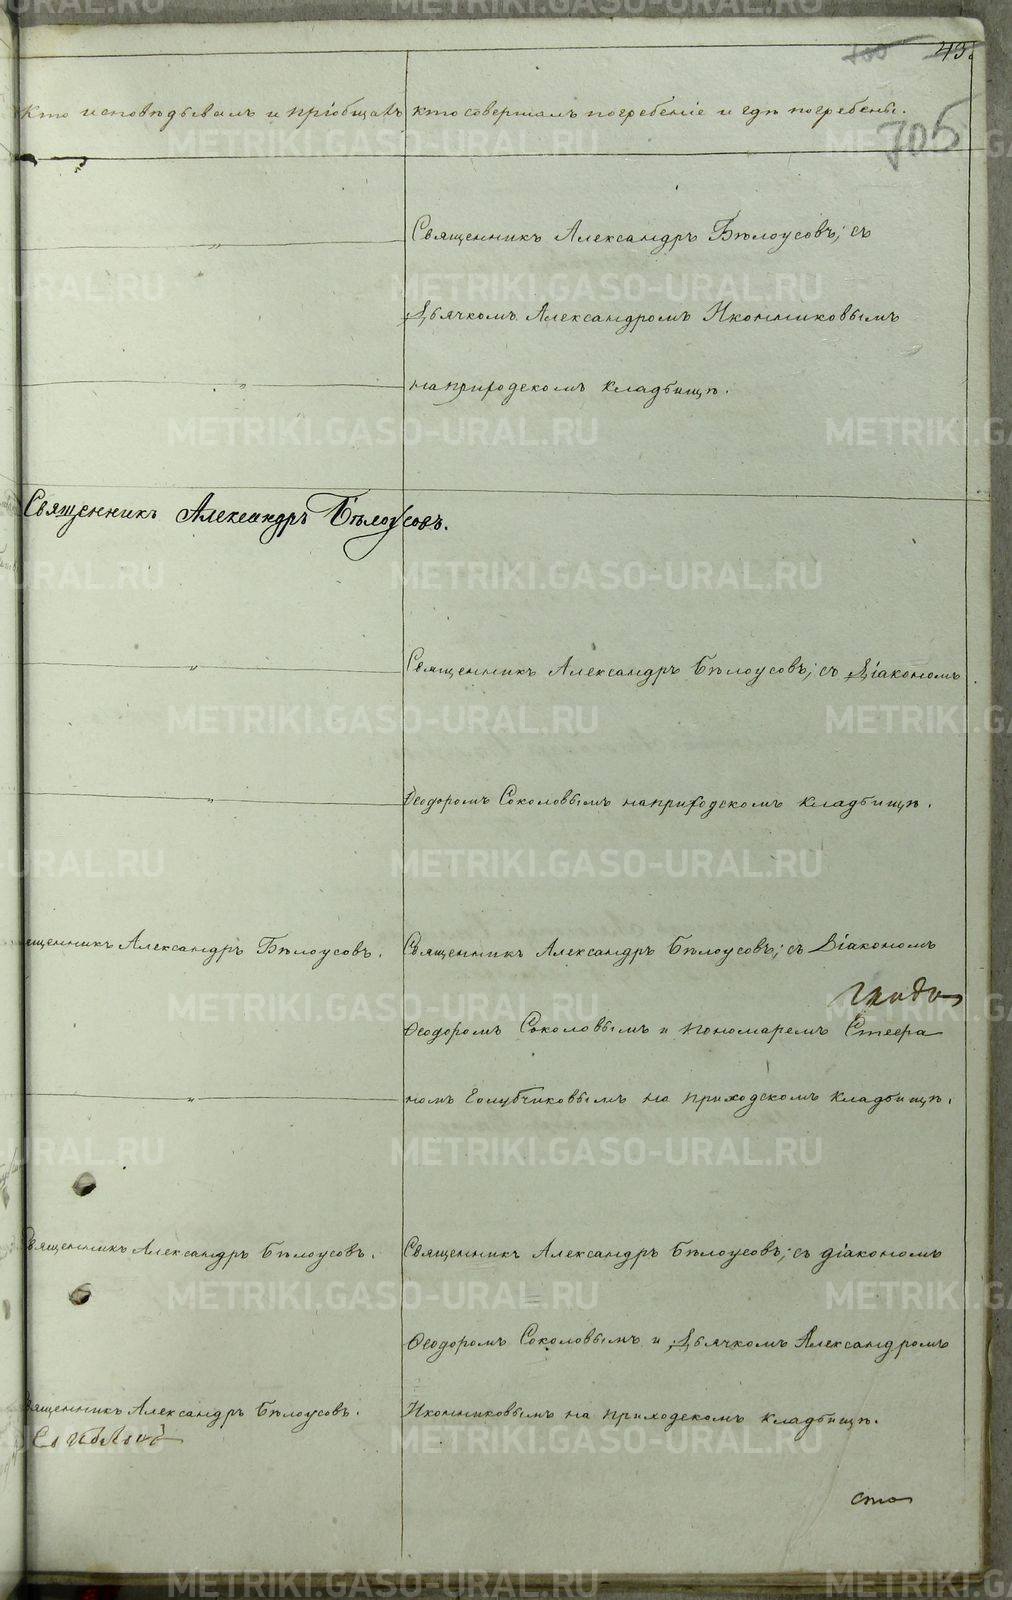 43
705
Кто исповѣдывалъ и пріобщалъ
кто совершалъ погребеніе и гдѣ погребены.
"
Священникъ Александръ Бѣлоусовъ; съ
Дьячкомъ Александромъ Иконниковымъ
"
на приходскомъ кладбищѣ.
Священникъ Александръ Бѣлоусовъ.
"
Священникъ Александръ Бѣлоусовъ; съ Діакономъ
"
Ѳеодоромъ Соколовымъ на приходскомъ кладбищѣ.
ященникъ Александръ Бѣлоусовъ.
Священникъ Александръ Бѣлоусовъ; съ Діакономъ
Ѳеодоромъ Соколовымъ и пономаремъ Стефа
"
номъ Голубчиковымъ на приходскомъ кладбищѣ.
Священникъ Александръ Бѣлоусовъ.
Священникъ Александръ Бѣлоусовъ; съ діакономъ
Ѳеодоромъ Соколовымъ и Дьячкомъ Александромъ
вященникъ Александръ Бѣлоусовъ.
Иконниковымъ на приходскомъ кладбищѣ.
сто
METRIKI.GASO-URAL.RU